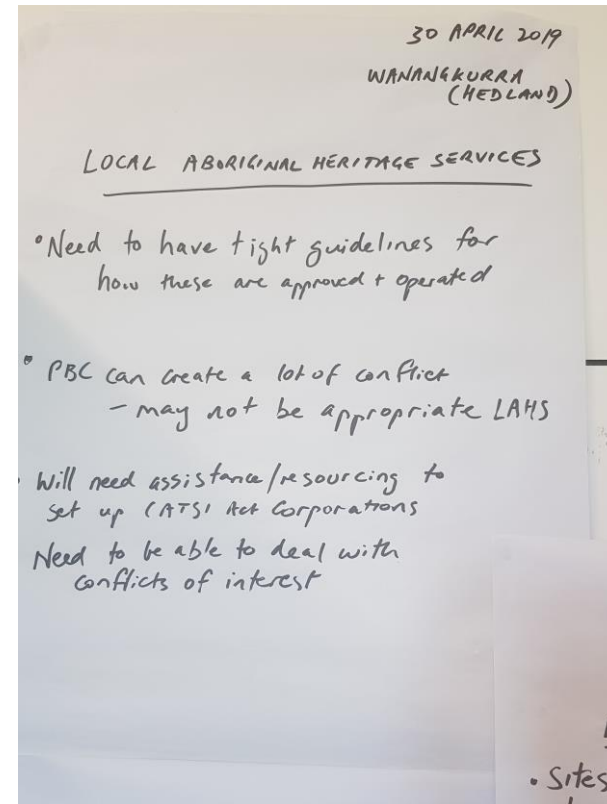 30 APRIL 2019
WANANGKURRA
(HEDLAND)
LOCAL ABORIGINAL HERITAGE SERVICES
• Need to have tight guidelines for
how these are approved + operated
• PBC can create a lot of conflict
- may not be appropriate LAHS
• Will need assistance/resourcing to
set up CATSI Act Corporations
Need to be able to deal with
conflicts of interest
• Sites